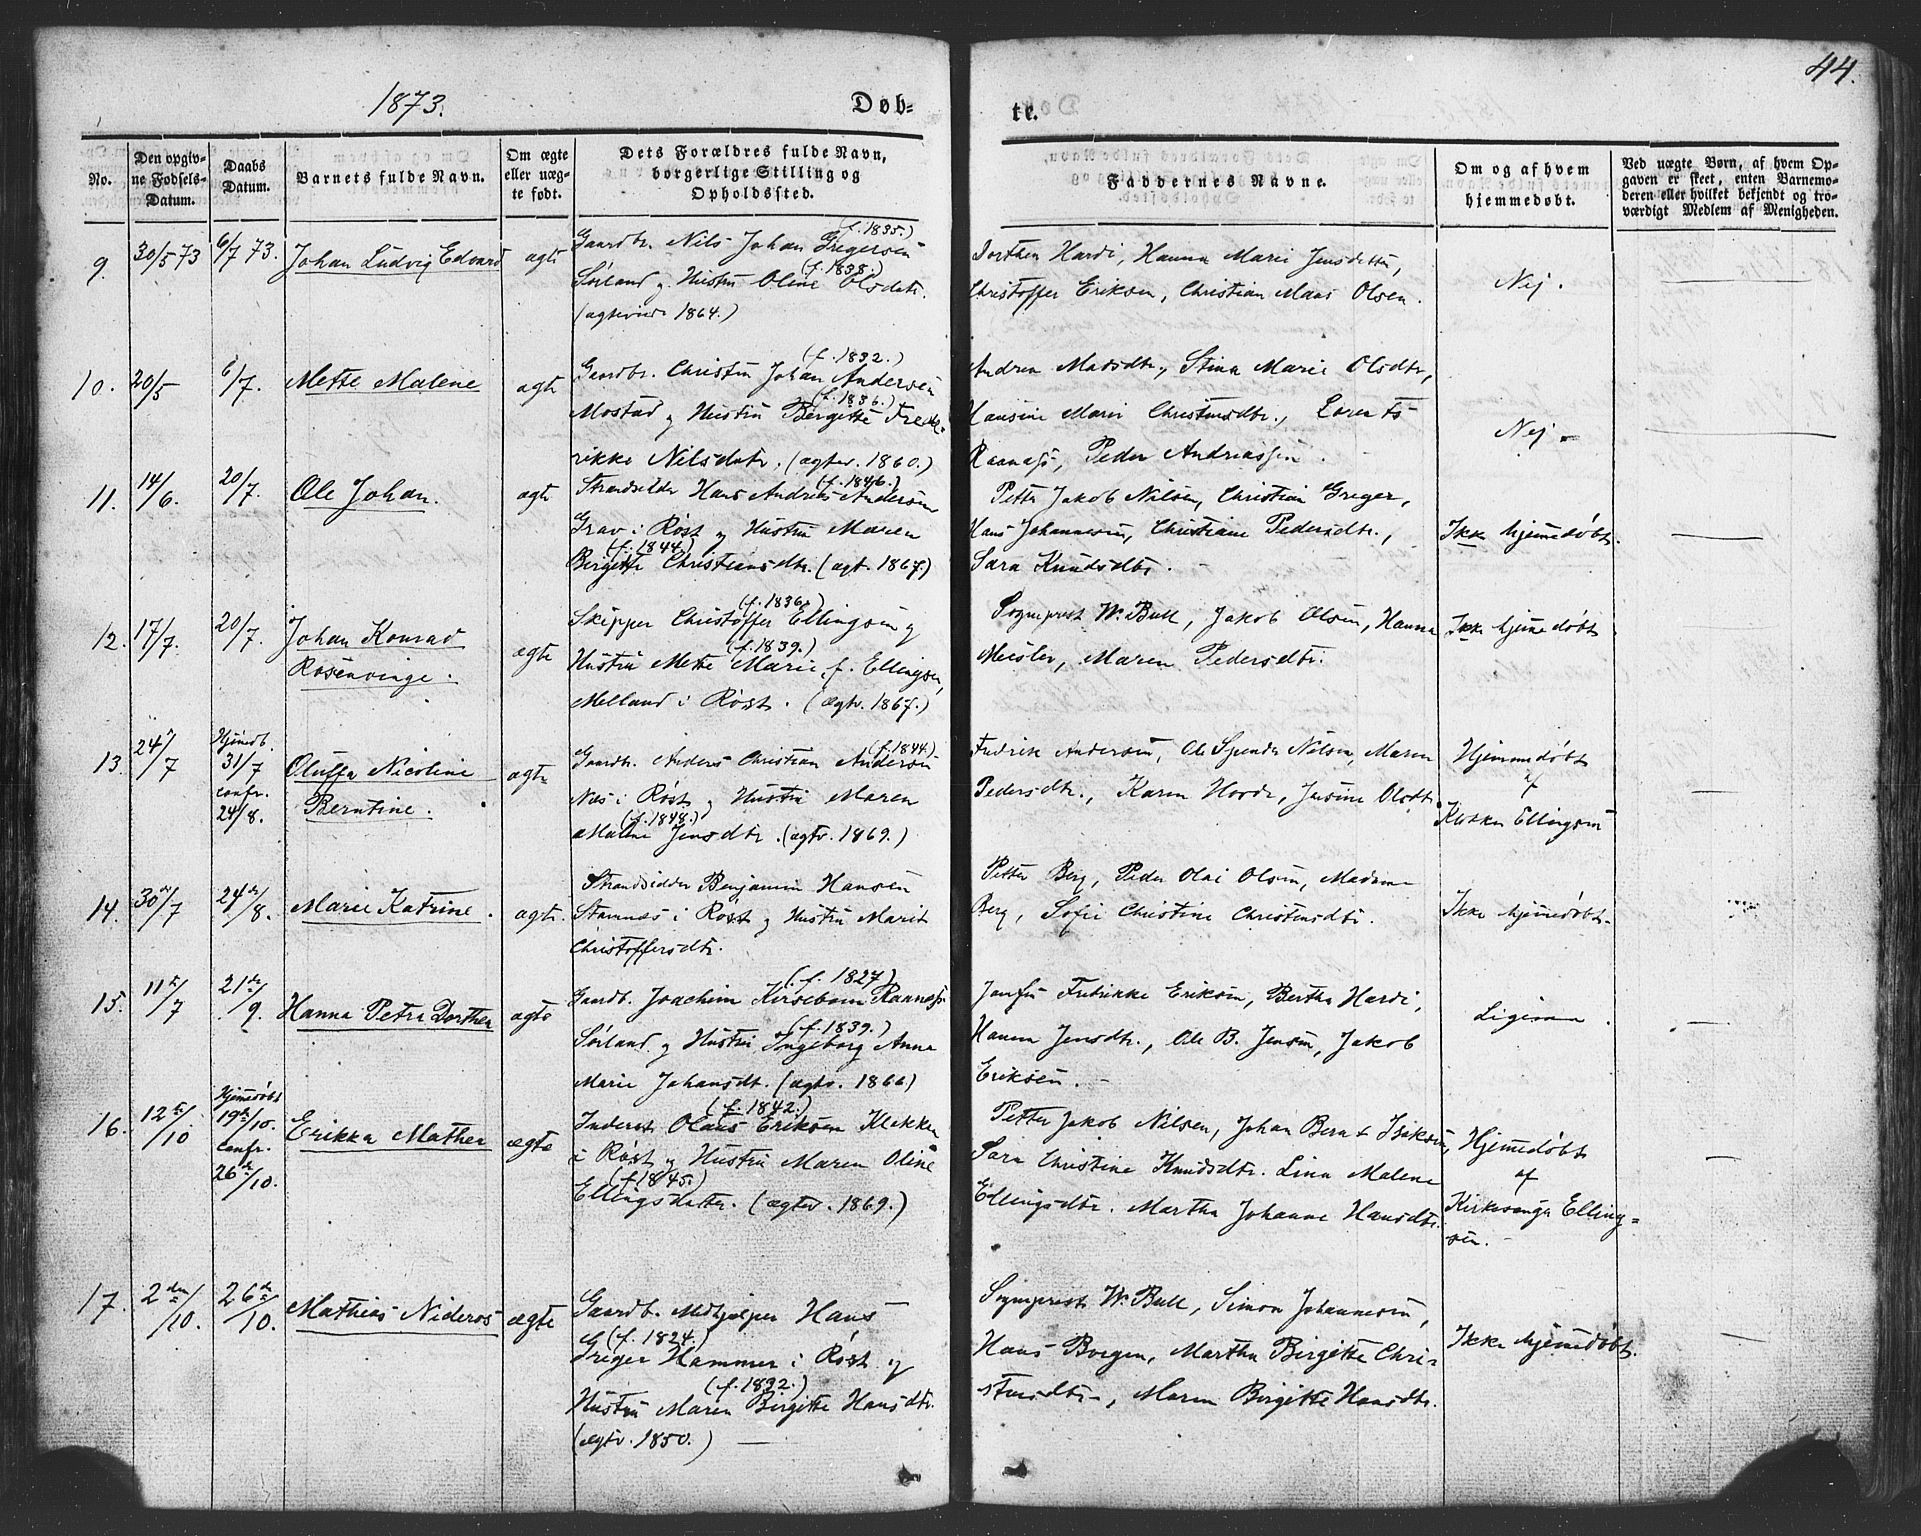 44.
1873.
Døb-
te.
No.
Den opgiv-
ne Fødsels-
Datum.
Daabs
Datum.
Barnets fulde Navn.
Om ægte
eller uæg-
te født.
Dets Forældres fulde Navn,
borgerlige Stilling og
Opholdssted.
Faddernes Navne.
Om og af hvem
hjemmedøbt.
Ved uægte Børn, af hvem Op-
gaven er skeet, enten Barnemo-
deren eller hvilket bekjendt og tro-
værdigt Medlem af Menigheden.
9. 30/5 73 6/7 73. Johan Ludvig Edvard ægte
(f. 1835.)
Gaardbr. Nils Johan Gregersen
(f. 1838.)
Sørland og Hustru Oline Olsdtr.
(ægteviede 1864.)
Dorthea Hardi, Hanna Marie Jensdatter,
Christoffer Eriksen, Christian Mans Olsen.
Nej.
10. 20/5 6/7. Mette Malene ægte
(f. 1832.)
Gaardbr. Christen Johan Andersen
(f. 1836.)
Mostad og Hustru Bergitte Frede-
rikke Nilsdatr. (ægtev. 1860.)
Andrea Madsdtr., Stina Marie Olsdtr,
Hansine Marie Christensdtr., Lorents
Raanass, Peder Andreassen.
Nej.
11. 14/6. 20/7. Ole Johan. ægte
(f. 1846.)
Strandsidder Hans Andreas Andersen
Grav i Røst og Hustru Maren
(f. 1844.)
Bergitte Christiansdtr. (ægt. 1867.)
Petter Jakob Nilsen, Christian Greger,
Hans Johannesen, Christiane Pedersdtr.,
Sara Knudsdtr.
Ikke hjemmedøbt.
12. 17/7. 20/7. Johan Konrad
Rosenvinge. ægte
(f. 1836.)
Skipper Christoffer Ellingsen og
(f. 1839.)
Hustru Mette Marie, f. Ellingsen,
Melland i Røst. (ægtv. 1867.)
Sogneprest W. Bull, Jakob Olsen, Hanna
Meisler, Maren Pedersdtr.
Ikke hjemmedøbt
13. 24/7 Hjemdb.
31/7
confr.
24/8. Oluffa Nicoline
Berntine. ægte
(f. 1844.)
Gaardbr. Anders Christian Andersen
Næs i Røst og Hustru Maren
(f. 1848.)
Malene Jensdtr. (ægtv. 1869.)
Fredrik Andersen, Ole Spender Nilsen, Maren
Pedersdtr., Karen Horde, Jensine Olsdtr.
Hjemmedøbt
af
Kirkes. Ellingsen
14. 30/7 24de/8. Marie Katrine. ægte.
Strandsidder Benjamin Hansen
Stamnæs i Røst og Hustru Marit
Christoffersdtr.
Petter Berg, Peder Olai Olsen, Madame
Berg, Sofie Christine Christensdtr.
Ikke hjemmedøbt.
15. 11/7 21de/9. Hanna Petra Dorthea ægte
(f. 1827)
Gaardb. Joachim Kirsebom Raanass
(f. 1839.)
Sørland og Hustru Ingeborg Anna
Marie Johansdt. (ægtv. 1866)
Jomfru Fredrikke Eriksen, Bertha Hardi,
Hanna Jensdtr., Ole B. Jensen, Jakob
Eriksen.
Ligesaa.
16. 12te/10 Hjemedøbt
19de/10.
confr.
26de/10. Erikka Mathea ægte
(f. 1842.)
Inderst Olaus Eriksen Klakken
i Røst og Hustru Maren Oline
(f. 1845.)
Ellingsdatter. (ægtev. 1869.)
Petter Jakob Nilsen, Johan Bernt Isaksen,
Sara Christine Knudsdtr. Lina Malene
Ellingsdtr. Martha Johanne Hansdtr.
Hjemmedøbt
af
Kirkesanger Elling-
sen.
17. 2den/10. 26de/10. Mathias Nideros ægte
Gaardb. Medhjælper Hans
(f. 1824.)
Greger Hammer i Røst og
(f. 1832.)
Hustru Maren Birgitte Hansdtr.
(ægtv. 1850.)
Sogneprest W. Bull, Simon Johannesen,
Hans Borgen, Martha Birgitte Chri-
stensdtr, Maren Birgitte Hansdtr.
Ikke hjemmedøbt.